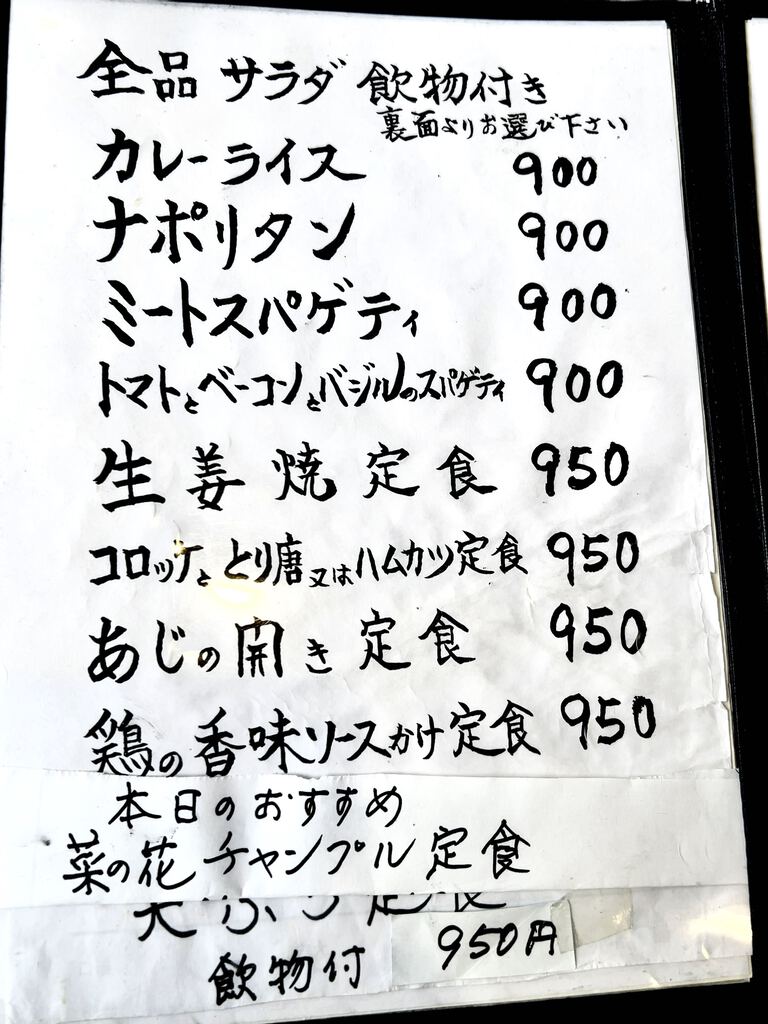 全品 サラダ 飲物付き
裏面よりお選び下さい
カレーライス 900
ナポリタン 900
ミートスパゲティ 900
トマトとベーコンとバジルのスパゲティ 900
生姜焼定食 950
コロッケと とり唐又はハムカツ定食 950
あじの開き定食 950
鶏の香味ソースかけ定食 950
本日のおすすめ
菜の花チャンプル定食
950円
飲物付